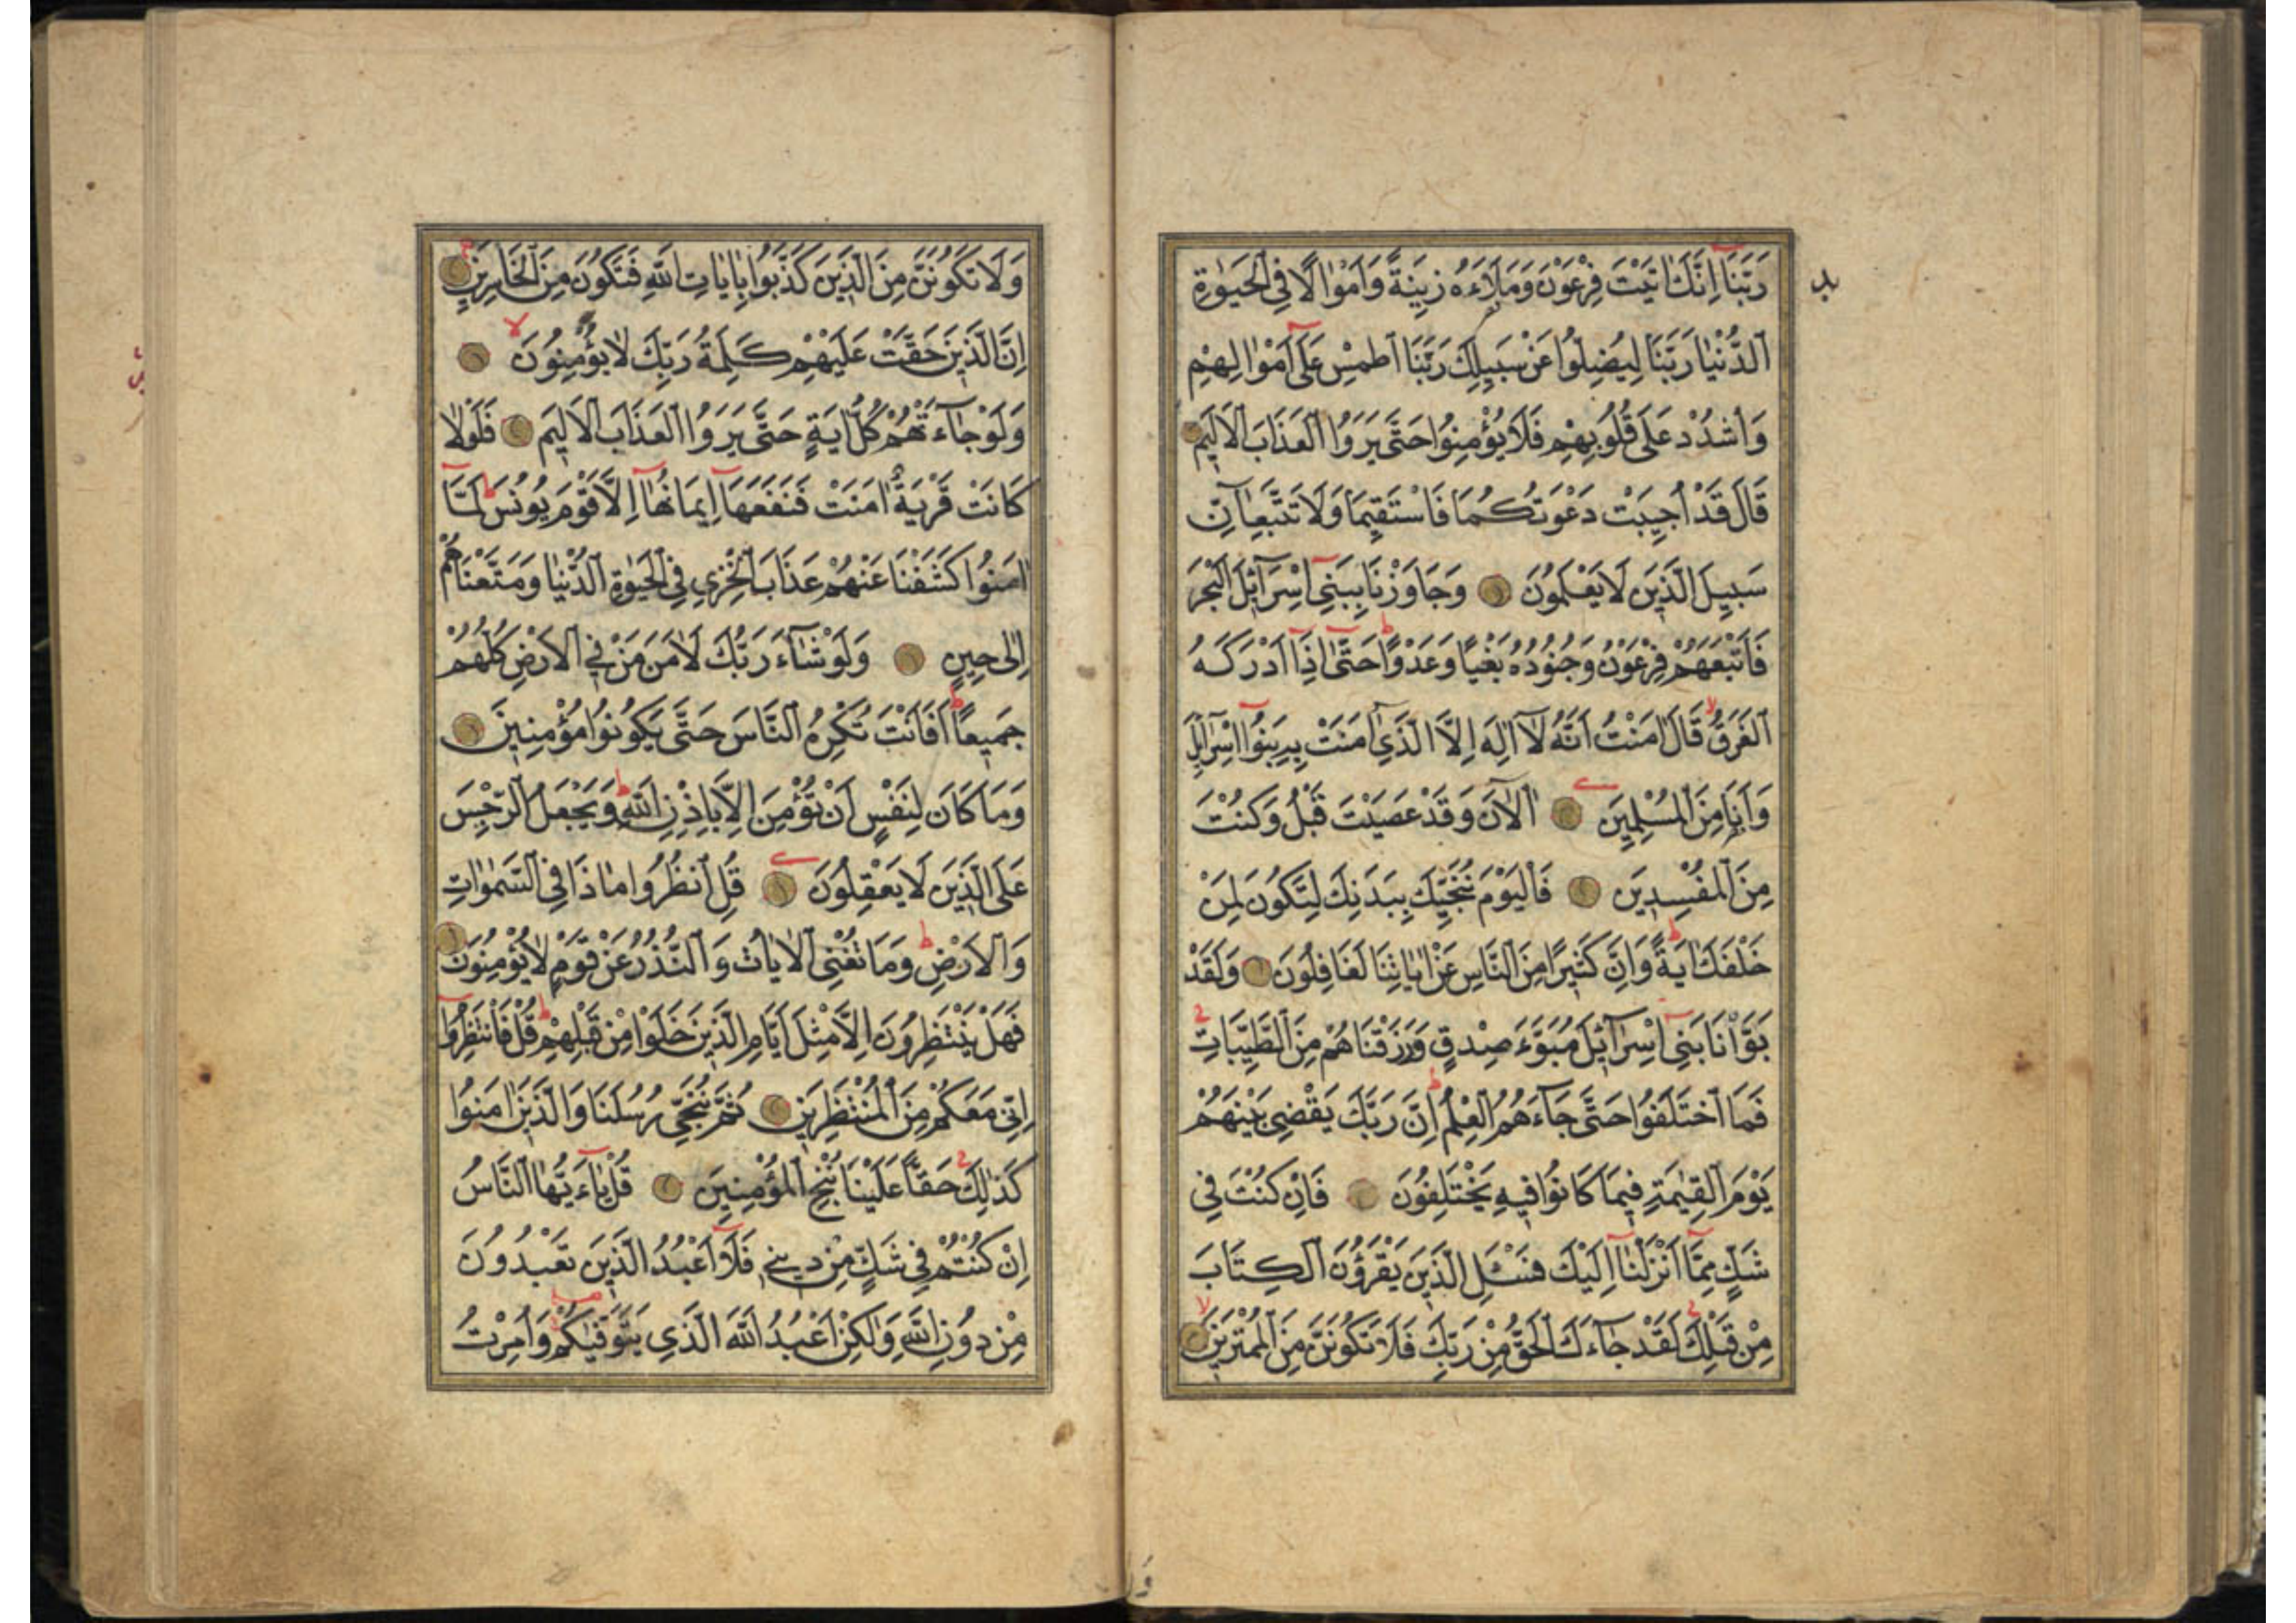 رَبَّنَا اِنَّكَ اٰتَيْتَ فِرْعَوْنَ وَمَلَاَءَهُ زِينَةً وَاَمْوَالًا فِي الْحَيٰوةِ
الدُّنْيَا رَبَّنَا لِيُضِلُّوا عَنْ سَبِيلِكَ رَبَّنَا اطْمِسْ عَلٰٓى اَمْوَالِهِمْ
وَاشْدُدْ عَلٰى قُلُوبِهِمْ فَلَا يُؤْمِنُوا حَتّٰى يَرَوُا الْعَذَابَ الْاَلِيمَ
قَالَ قَدْ اُجِيبَتْ دَعْوَتُكُمَا فَاسْتَقِيمَا وَلَا تَتَّبِعَٓانِّ
سَبِيلَ الَّذِينَ لَا يَعْلَمُونَ وَجَاوَزْنَا بِبَنِٓي اِسْرَٓائِلَ الْبَحْرَ
فَاَتْبَعَهُمْ فِرْعَوْنُ وَجُنُودُهُ بَغْيًا وَعَدْوًا حَتّٰٓى اِذَٓا اَدْرَكَهُ
الْغَرَقُ قَالَ اٰمَنْتُ اَنَّهُ لَٓا اِلٰهَ اِلَّا الَّذِٓي اٰمَنَتْ بِهِ بَنُٓوا اِسْرَٓائِلَ
وَاَنَا مِنَ الْمُسْلِمِينَ اٰلْاٰنَ وَقَدْ عَصَيْتَ قَبْلُ وَكُنْتَ
مِنَ الْمُفْسِدِينَ فَالْيَوْمَ نُنَجِّيكَ بِبَدَنِكَ لِتَكُونَ لِمَنْ
خَلْفَكَ اٰيَةً وَاِنَّ كَثِيرًا مِنَ النَّاسِ عَنْ اٰيَاتِنَا لَغَافِلُونَ وَلَقَدْ
بَوَّاْنَا بَنِٓي اِسْرَٓائِلَ مُبَوَّءَ صِدْقٍ وَرَزَقْنَاهُمْ مِنَ الطَّيِّبَاتِ
فَمَا اخْتَلَفُوا حَتّٰى جَٓاءَهُمُ الْعِلْمُ اِنَّ رَبَّكَ يَقْضِي بَيْنَهُمْ
يَوْمَ الْقِيٰمَةِ فِيمَا كَانُوا فِيهِ يَخْتَلِفُونَ فَاِنْ كُنْتَ فِي
شَكٍّ مِمَّٓا اَنْزَلْنَٓا اِلَيْكَ فَسْـَٔلِ الَّذِينَ يَقْرَؤُنَ الْكِتَابَ
مِنْ قَبْلِكَ لَقَدْ جَٓاءَكَ الْحَقُّ مِنْ رَبِّكَ فَلَا تَكُونَنَّ مِنَ الْمُمْتَرِينَ
وَلَا تَكُونَنَّ مِنَ الَّذِينَ كَذَّبُوا بِاٰيَاتِ اللّٰهِ فَتَكُونَ مِنَ الْخَاسِرِينَ
اِنَّ الَّذِينَ حَقَّتْ عَلَيْهِمْ كَلِمَةُ رَبِّكَ لَا يُؤْمِنُونَ
وَلَوْ جَٓاءَتْهُمْ كُلُّ اٰيَةٍ حَتّٰى يَرَوُا الْعَذَابَ الْاَلِيمَ فَلَوْلَا
كَانَتْ قَرْيَةٌ اٰمَنَتْ فَنَفَعَهَٓا اِيمَانُهَٓا اِلَّا قَوْمَ يُونُسَ لَمَّٓا
اٰمَنُوا كَشَفْنَا عَنْهُمْ عَذَابَ الْخِزْيِ فِي الْحَيٰوةِ الدُّنْيَا وَمَتَّعْنَاهُمْ
اِلٰى حِينٍ وَلَوْ شَٓاءَ رَبُّكَ لَاٰمَنَ مَنْ فِي الْاَرْضِ كُلُّهُمْ
جَمِيعًا اَفَاَنْتَ تُكْرِهُ النَّاسَ حَتّٰى يَكُونُوا مُؤْمِنِينَ
وَمَا كَانَ لِنَفْسٍ اَنْ تُؤْمِنَ اِلَّا بِاِذْنِ اللّٰهِ وَيَجْعَلُ الرِّجْسَ
عَلَى الَّذِينَ لَا يَعْقِلُونَ قُلِ انْظُرُوا مَاذَا فِي السَّمٰوَاتِ
وَالْاَرْضِ وَمَا تُغْنِي الْاٰيَاتُ وَالنُّذُرُ عَنْ قَوْمٍ لَا يُؤْمِنُونَ
فَهَلْ يَنْتَظِرُونَ اِلَّا مِثْلَ اَيَّامِ الَّذِينَ خَلَوْا مِنْ قَبْلِهِمْ قُلْ فَانْتَظِرُٓوا
اِنِّي مَعَكُمْ مِنَ الْمُنْتَظِرِينَ ثُمَّ نُنَجِّي رُسُلَنَا وَالَّذِينَ اٰمَنُوا
كَذٰلِكَ حَقًّا عَلَيْنَا نُنْجِ الْمُؤْمِنِينَ قُلْ يَٓا ءَيُّهَا النَّاسُ
اِنْ كُنْتُمْ فِي شَكٍّ مِنْ دِينِي فَلَٓا اَعْبُدُ الَّذِينَ تَعْبُدُونَ
مِنْ دُونِ اللّٰهِ وَلٰكِنْ اَعْبُدُ اللّٰهَ الَّذِي يَتَوَفّٰيكُمْ وَاُمِرْتُ